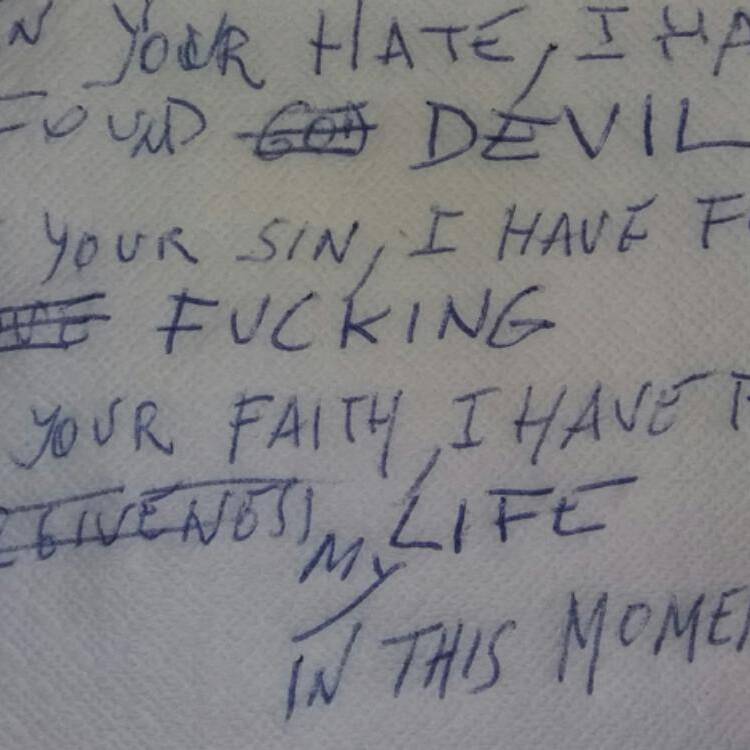 N YOUR HATE, I HA
FOUND GOD DEVIL
YOUR SIN, I HAVE F
FUCKING
YOUR FAITH, I HAVE
GIVENESS MY LIFE
IN THIS MOMEN